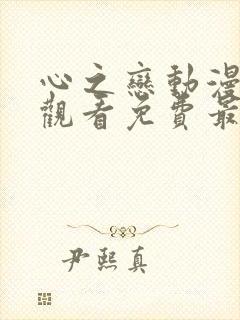 心之戀動漫
觀看免費最
尹熙真